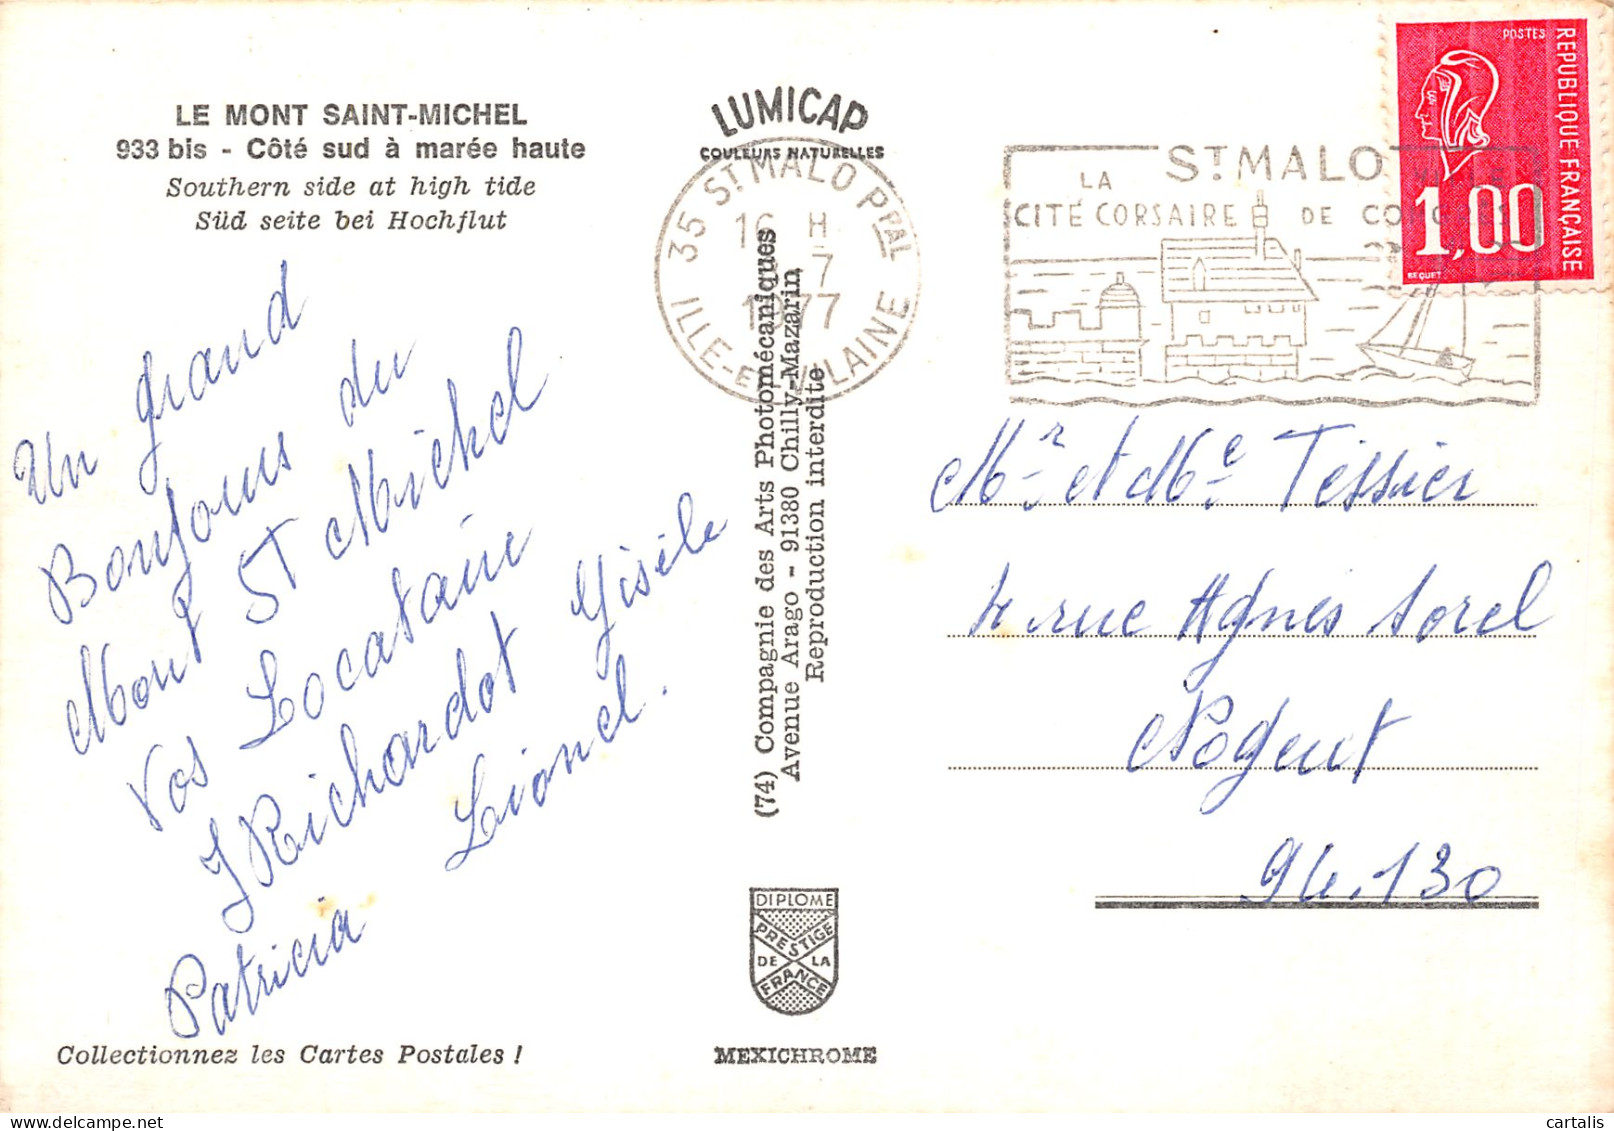 LE MONT SAINT-MICHEL
933 bis - Côté sud à marée haute
Southern side at high tide
Süd seite bei Hochflut
Un grand
Bonjour du
Mont St Michel
Vos Locataire
J Richardot Gisèle
Patricia Lionel.
Collectionnez les Cartes Postales !
LUMICAP
COULEURS NATURELLES
35 ST MALO PPAL
16 H
7
1977
ILLE-ET-VILAINE
(74) Compagnie des Arts Photomécaniques
Avenue Arago - 91380 Chilly-Mazarin
Reproduction interdite
DIPLOME
PRESTIGE
DE LA
FRANCE
MEXICHROME
ST MALO
LA
CITÉ CORSAIRE
VILLE
DE CONGRES
POSTES
REPUBLIQUE FRANÇAISE
1,00
BEQUET
Mr et Me Tessier
4 rue Agnès Sorel
Nogent
94.130
cartalis